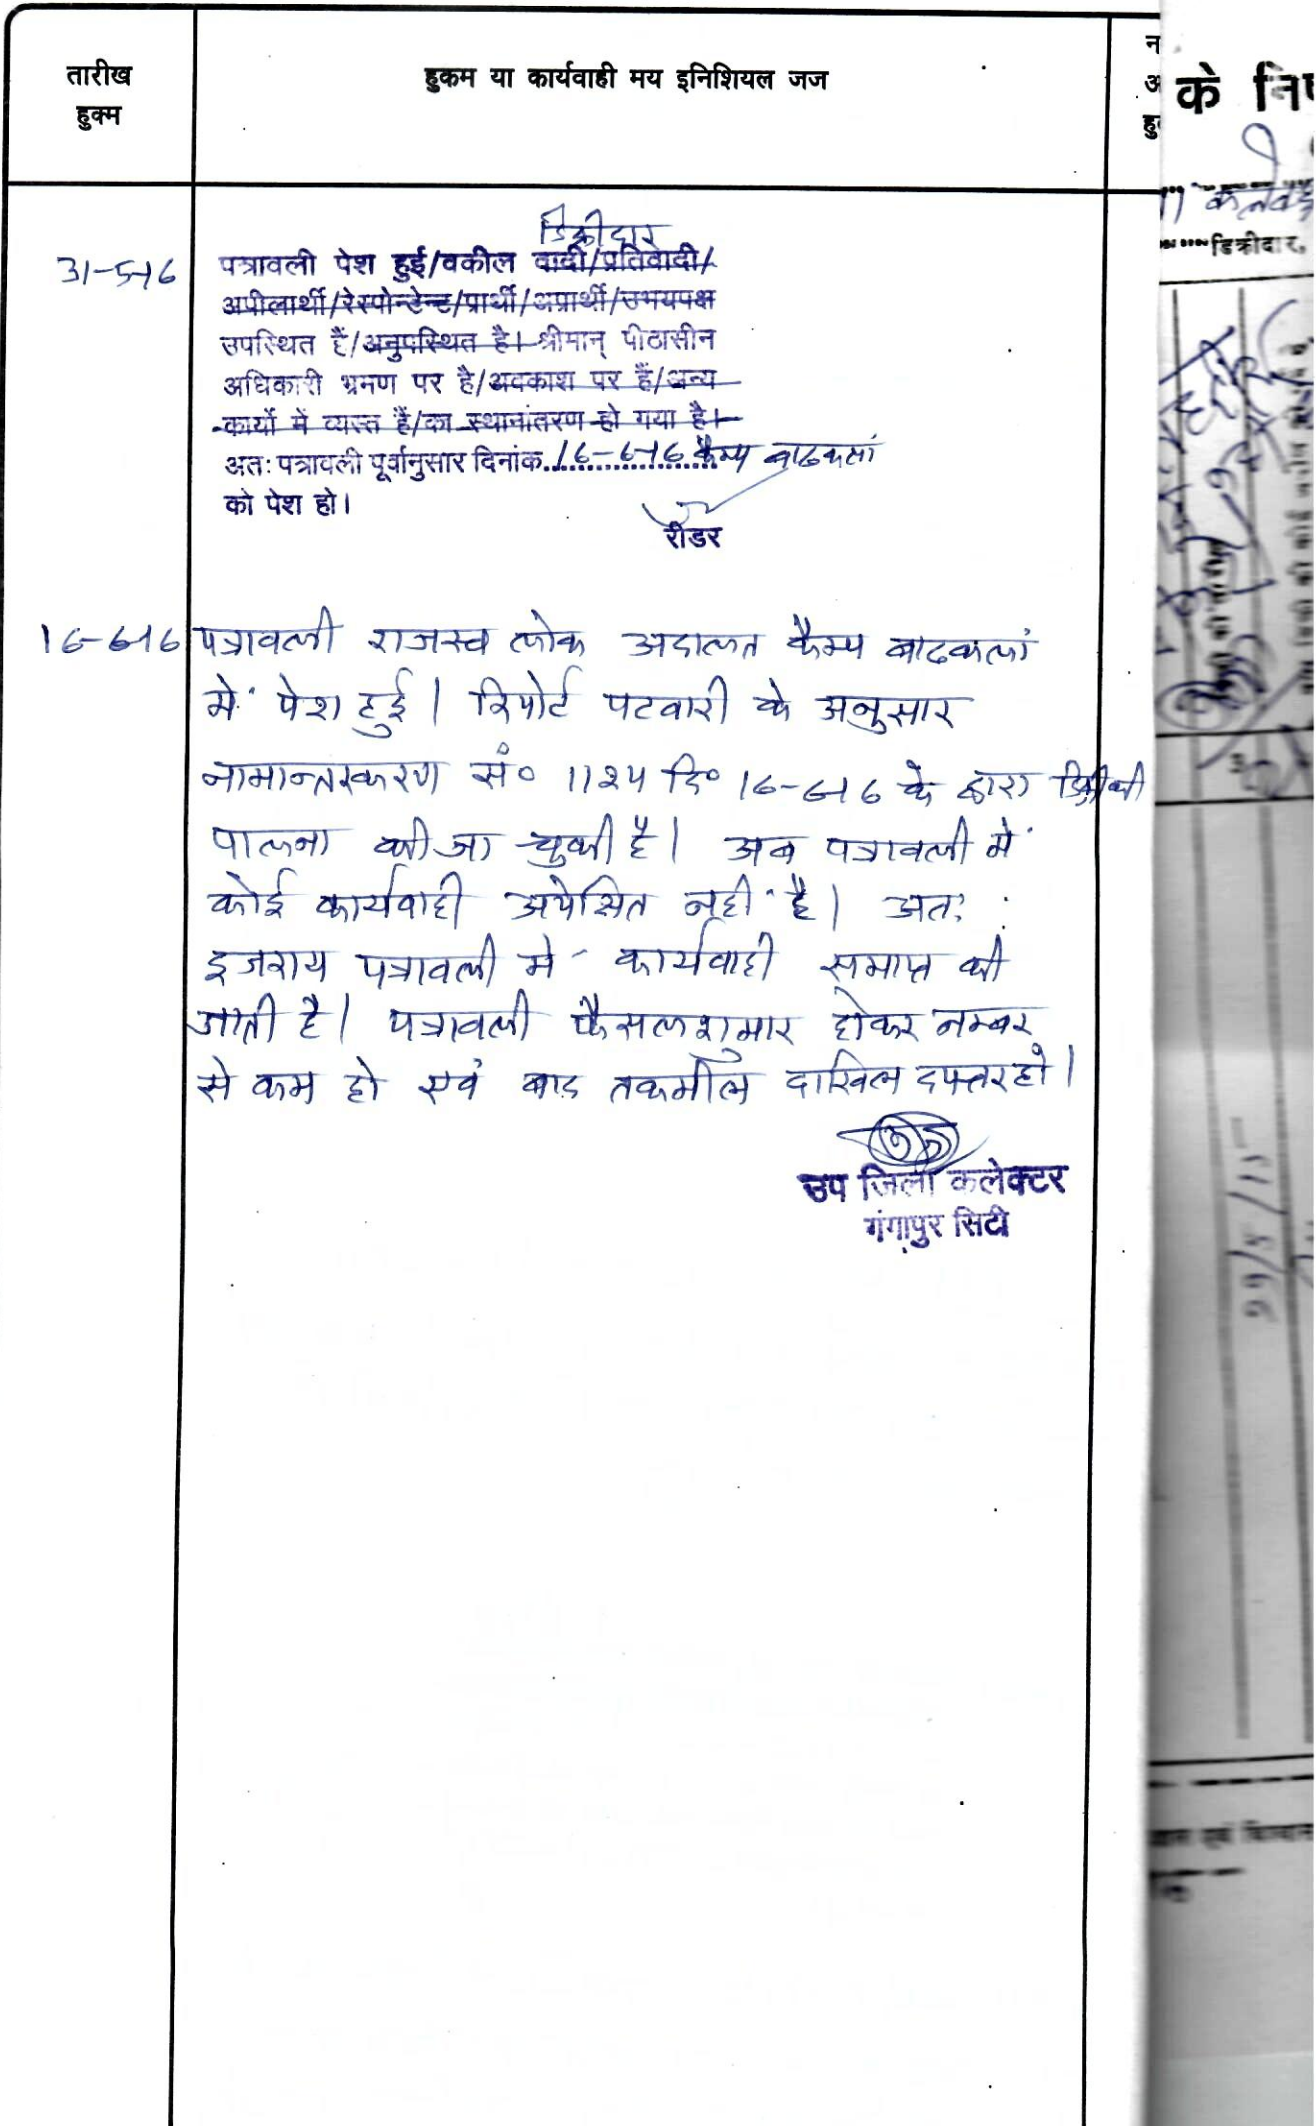 तारीख
हुक्म
हुकम या कार्यवाही मय इनिशियल जज
न
अ
हु
के
डिक्रीदार,
डिक्रीदार
31-5-16 पत्रावली पेश हुई/वकील वादी/प्रतिवादी/
अपीलार्थी/रेस्पोन्डेन्ट/प्रार्थी/अप्रार्थी/उभयपक्ष
उपस्थित हैं/अनुपस्थित है। श्रीमान् पीठासीन
अधिकारी भ्रमण पर है/अवकाश पर हैं/अन्य
कार्यो में व्यस्त हैं/का स्थानांतरण हो गया है।
अतः पत्रावली पूर्वानुसार दिनांक 16-6-16 कैम्प बाढकलां
को पेश हो।
रीडर
16-6-16 पत्रावली राजस्व लोक अदालत कैम्प बाढकलां
में पेश हुई। रिपोर्ट पटवारी के अनुसार
नामान्तरकरण सं० 1124 दि० 16-6-16 के द्वारा डिक्री की
पालना की जा चुकी है। अब पत्रावली में
कोई कार्यवाही अपेक्षित नहीं है। अतः
इजराय पत्रावली में कार्यवाही समाप्त की
जाती है। पत्रावली फैसलशुमार होकर नम्बर
से कम हो एवं बाद तकमील दाखिल दफ्तर हो।
उप जिला कलेक्टर
गंगापुर सिटी